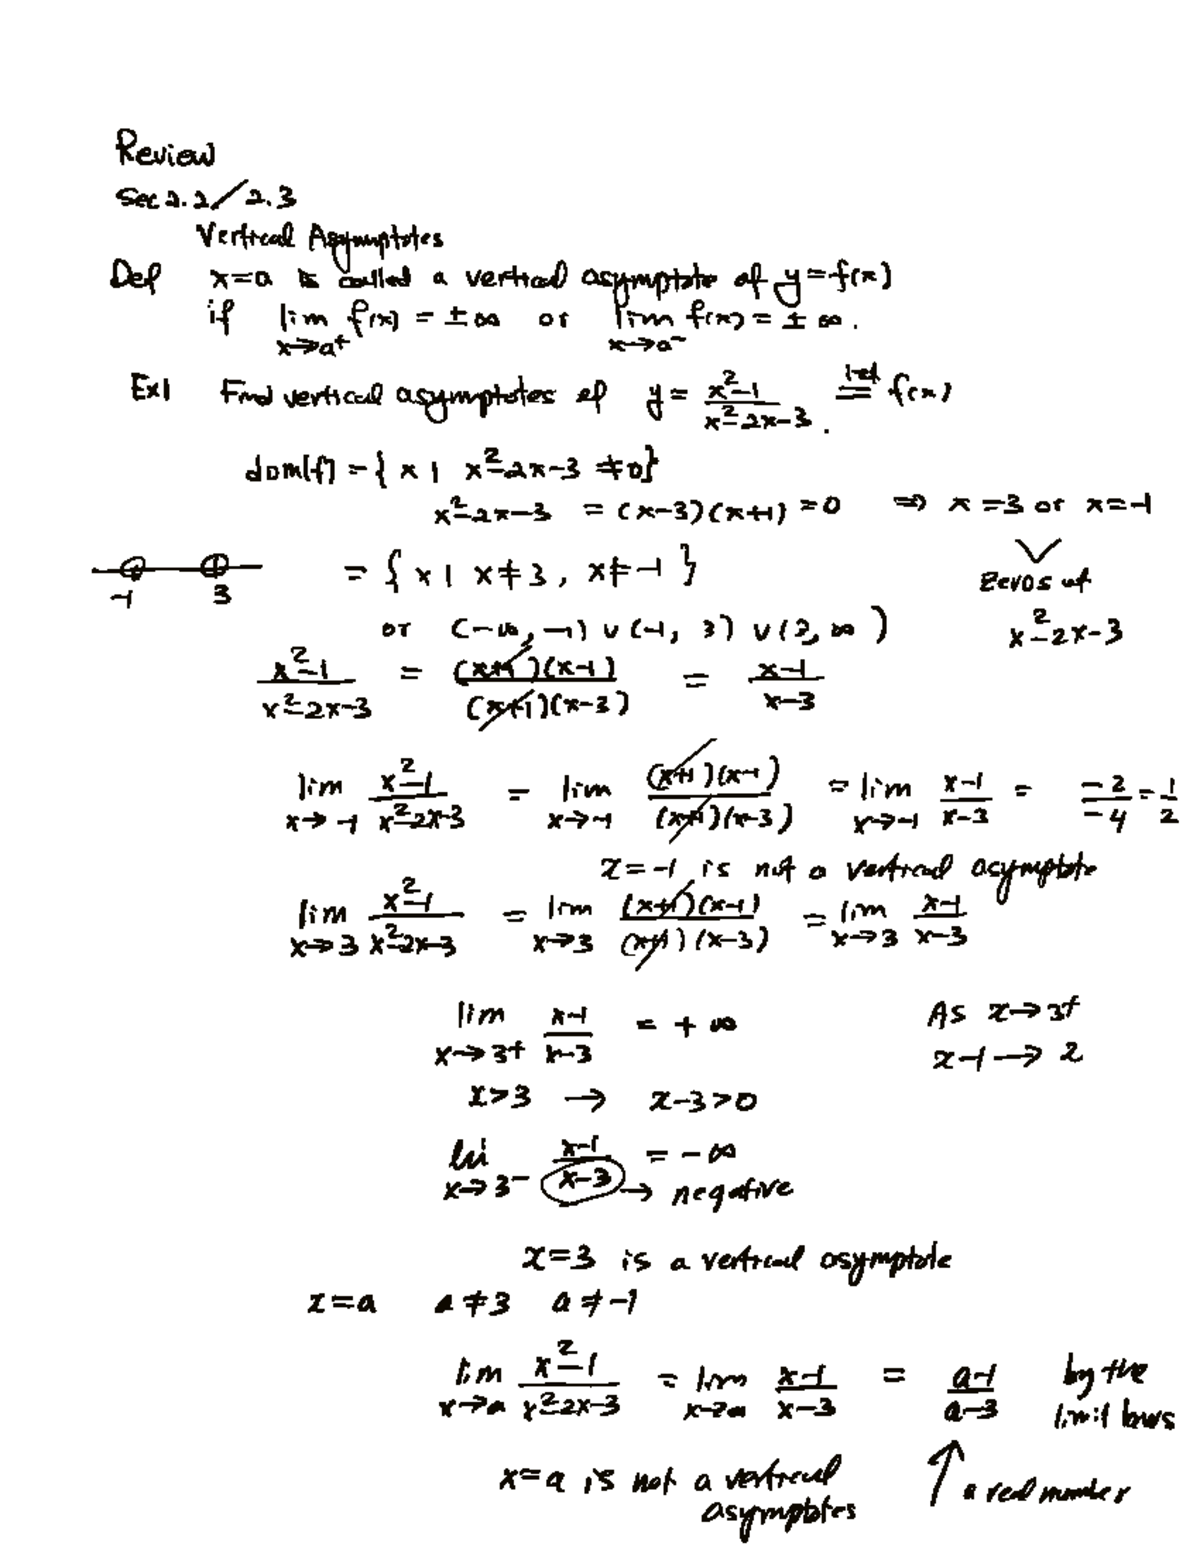 Review
Sec 2.2/2.3
Vertical Asymptotes
Def x=a is called a vertical asymptote of y=f(x)
if lim x→a⁺ f(x) = ±∞ or lim x→a⁻ f(x) = ±∞.
Ex1 Find vertical asymptotes of y = (x²-1)/(x²-2x-3). =(let) f(x)
dom(f) = { x | x²-2x-3 ≠0}
x²-2x-3 = (x-3)(x+1) = 0 ⇒ x=3 or x=-1
-1 3 = { x | x≠3, x≠-1 } zeros of
or (-∞, -1) ∪ (-1, 3) ∪ (3, ∞) x²-2x-3
(x²-1)/(x²-2x-3) = (x+1)(x-1)/(x+1)(x-3) = (x-1)/(x-3)
lim x→-1 (x²-1)/(x²-2x-3) = lim x→-1 (x+1)(x-1)/(x+1)(x-3) = lim x→-1 (x-1)/(x-3) = -2/-4 = 1/2
x=-1 is not a vertical asymptote
lim x→3 (x²-1)/(x²-2x-3) = lim x→3 (x+1)(x-1)/(x+1)(x-3) = lim x→3 (x-1)/(x-3)
lim x→3+ (x-1)/(x-3) = +∞ As x→3+
x-1→2
x>3 → x-3>0
lim x→3- (x-1)/(x-3) = -∞
→ negative
x=3 is a vertical asymptote
x=a a≠3 a≠-1
lim x→a (x²-1)/(x²-2x-3) = lim x→a (x-1)/(x-3) = (a-1)/(a-3) by the
limit laws
x=a is not a vertical ↑ a real number
asymptotes